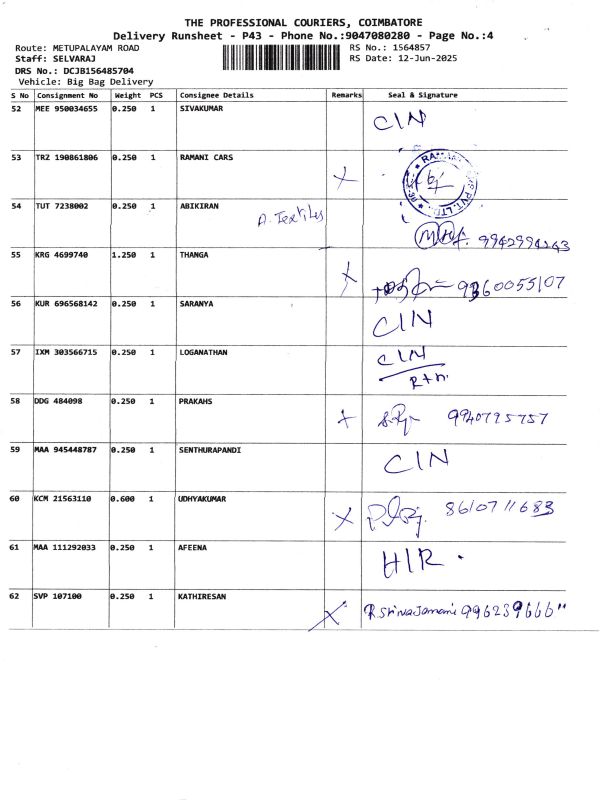 THE PROFESSIONAL COURIERS, COIMBATORE
Delivery Runsheet - P43 - Phone No.:9047080280 - Page No.:4
Route: METUPALAYAM ROAD RS No.: 1564857
Staff: SELVARAJ RS Date: 12-Jun-2025
DRS No.: DCJB156485704
Vehicle: Big Bag Delivery
S No Consignment No Weight PCS Consignee Details Remarks Seal & Signature
52 MEE 950034655 0.250 1 SIVAKUMAR CIN
53 TRZ 190861806 0.250 1 RAMANI CARS X
54 TUT 7238002 0.250 1 ABIKIRAN A. Textiles
55 KRG 4699740 1.250 1 THANGA X 9360055107
56 KUR 696568142 0.250 1 SARANYA CIN
57 IXM 303566715 0.250 1 LOGANATHAN CIN
R+n.
58 DDG 484098 0.250 1 PRAKAHS X 9940795757
59 MAA 945448787 0.250 1 SENTHURAPANDI CIN
60 KCM 21563110 0.600 1 UDHYAKUMAR X 8610711683
61 MAA 111292033 0.250 1 AFEENA HIR.
62 SVP 107100 0.250 1 KATHIRESAN X